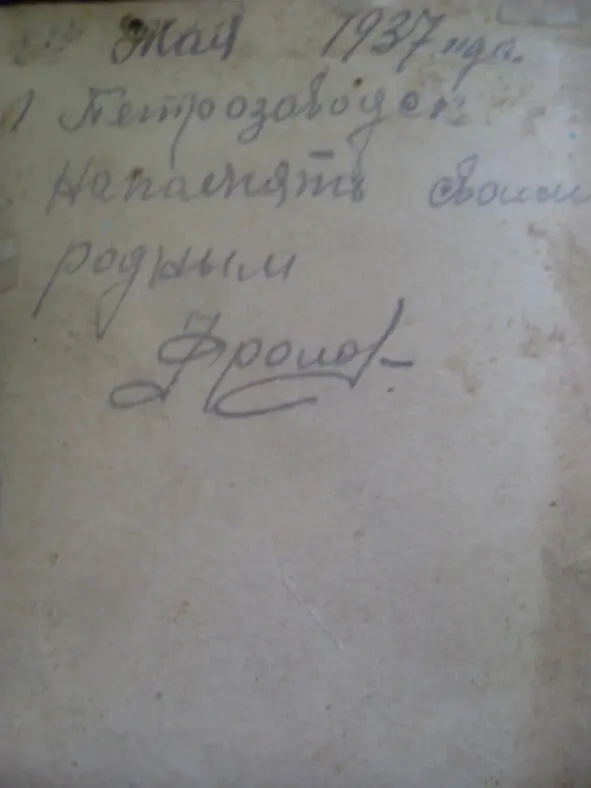 Мая 1937 года.
Петрозаводск
На память своим
родным
Фролов